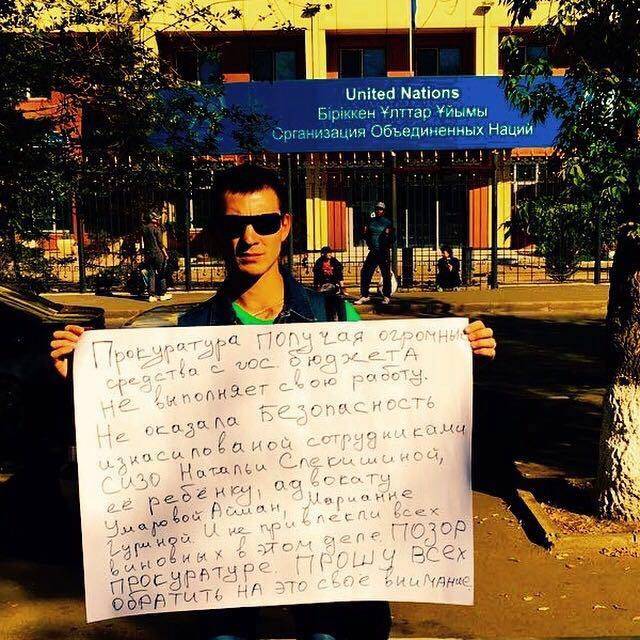 United Nations
Біріккен Ұлттар Ұйымы
Организация Объединенных Наций
Прокуратура получая огромные
средства с гос бюджета
не выполняет свою работу.
Не оказала Безопасность
изнасилованой сотрудниками
СИЗО Натальи Слекишиной,
её ребёнку, адвокату
Умаровой Айман, Марианне
Гуриной. И не привлекли всех
виновных в этом деле. ПОЗОР
ПРОКУРАТУРЕ. ПРОШУ ВСЕХ
ОБРАТИТЬ НА ЭТО СВОЁ ВНИМАНИЕ